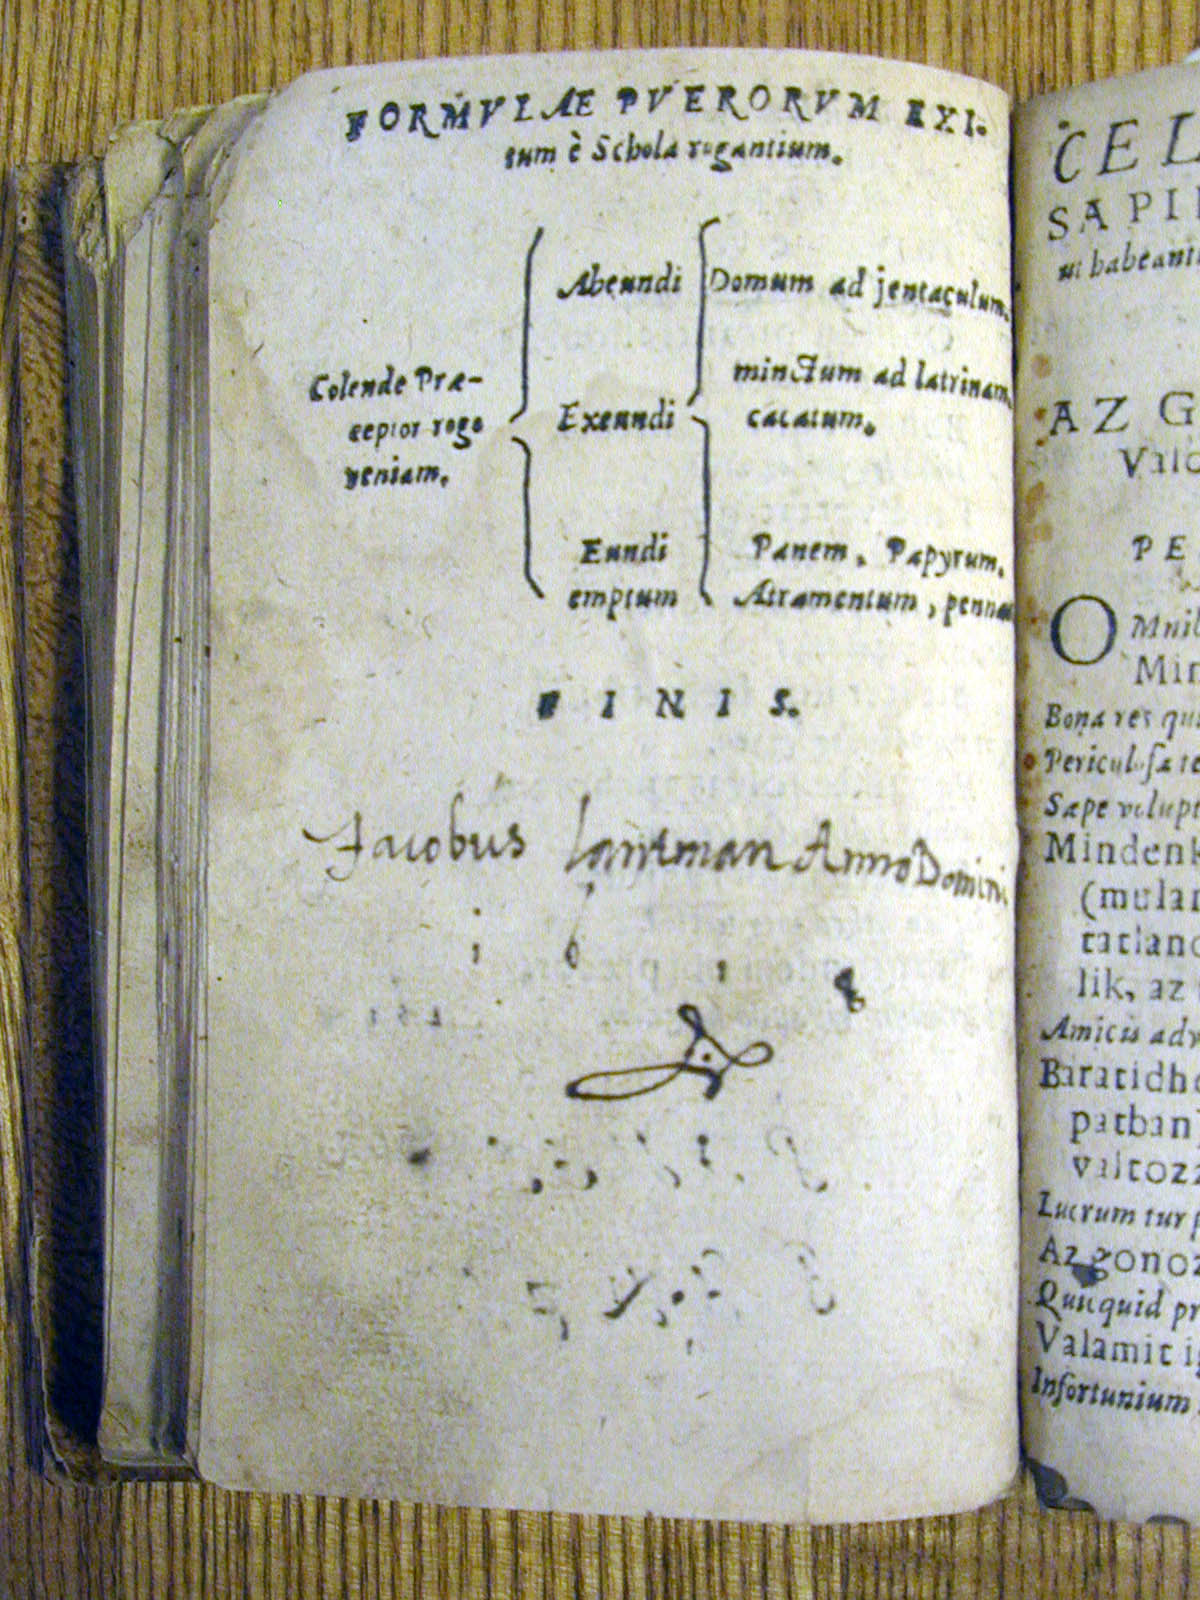 FORMVLAE PVERORVM EXI-
tum è Schola rogantium.
Abeundi Domum ad jentaculum.
Colende Præ-
ceptor rogo
veniam.
Exeundi
minctum ad latrinam,
cacatum.
Eundi
emptum
Panem, Papyrum,
Atramentum, pennas
FINIS.
Jacobus Lantman Anno Domini
1 6 1 8
CEL
SAPI
ut habeant
AZ G
PE
OMnib
Min
Bona res qu
Periculosa re
Sæpe volupt
Mindenk
(mular
tatland
lik, az
Amicis adv
Baratidho
patban
valtozz
Lucrum turp
Az gonoz
Quicquid pr
Valamit ig
Infortunium